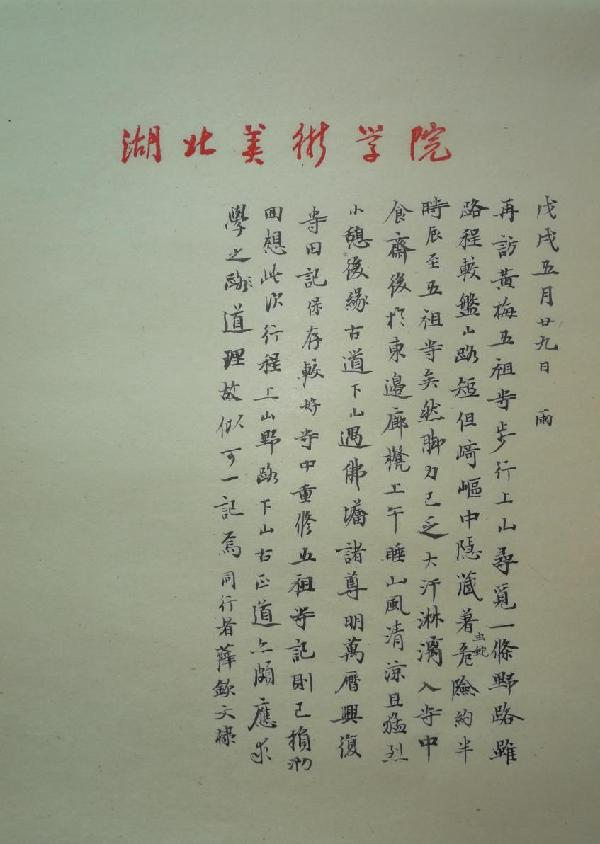 湖北美術学院
戊戌五月廿九日 雨
再訪黃梅五祖寺步行上山尋覓一條野路雖
路程較盤山路短但崎嶇中隱藏著虫蛇危險約半
時辰至五祖寺矣然腳力已乏大汗淋漓入寺中
食齋後於東邊廊凳上午睡山風清涼且猛烈
小憩後緣古道下山遇佛墖諸尊明萬曆興復
寺田記保存較好寺中重修五祖寺記則已損
回想此次行程上山野路下山古正道亦頗應求
學之道理故似可一記焉同行者薛欽文